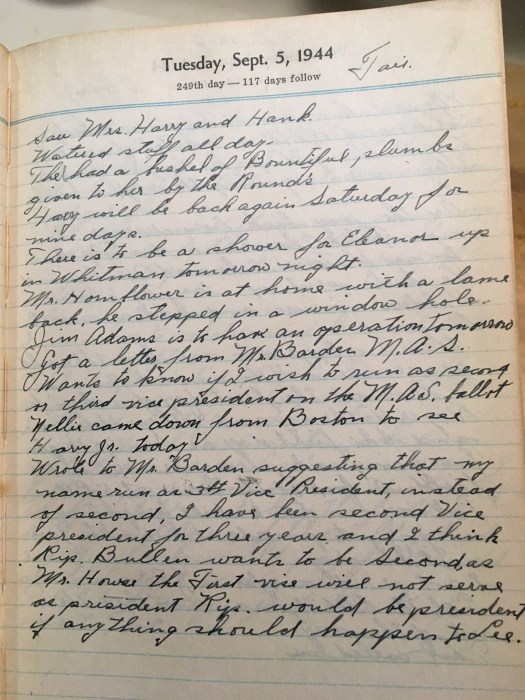 Tuesday, Sept. 5, 1944
249th day — 117 days follow
Fair.
Saw Mrs. Harry and Hank.
Watered stuff all day.
The had a bushel of Bountiful, plumbs
given to her by the Rounds
Harry will be back again Saturday for
nine days.
There is to be a shower for Eleanor up
in Whitman tomorrow night.
Mr. Hornflower is at home with a lame
back, he stepped in a window hole.
Jim Adams is to have an operation tomorrow
Got a letter from Mr. Barden M.A.S.
Wants to know if I wish to run as second
or third vice president on the M.A.S. ballot
Nellie came down from Boston to see
Harry Jr. today
Wrote to Mr. Barden suggesting that my
name run as 3rd Vice President, instead
of second, I have been second Vice
president for three years and I think
Rip. Bullen wants to be second as
Mr. Howse the First vise will not serve
as president Rip. would be president
if anything should happen to Lee.